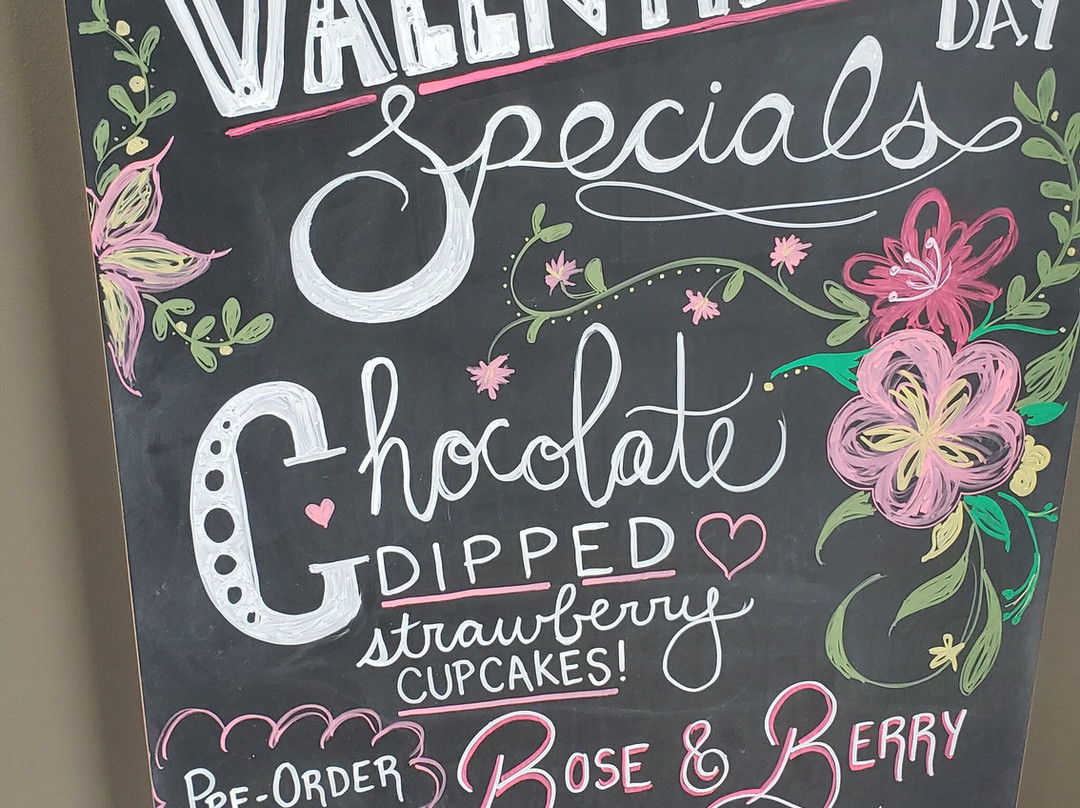 VALENTIN
DAY
Specials
Chocolate
DIPPED
strawberry
CUPCAKES!
PRE-ORDER
ROSE & BERRY